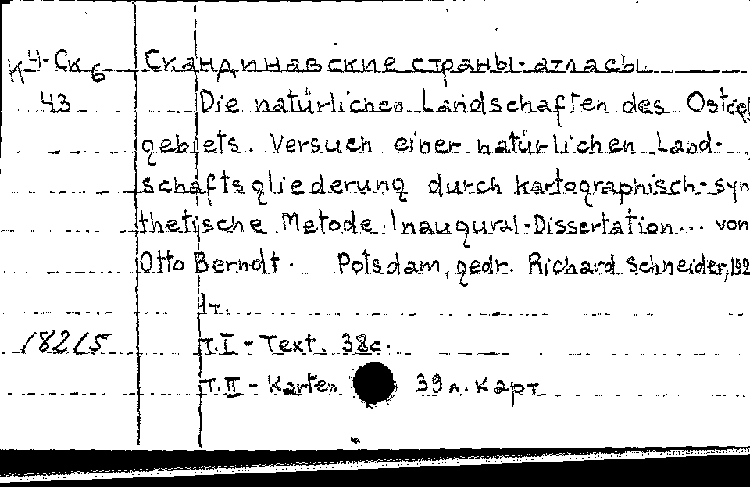 К4-Ск6 Скандинавские страны-атласы.
43 Die natürlichen Landschaften des
gebiets. Versuch einer natürlichen Land-
schaftsgliederung durch kartographisch-syn
thetische Metode. Inaugural-Dissertation... von
Otto Berndt. Potsdam, gedr. Richard Schneider, 192
18215 т.I - Text. 38с.
т.II - Karten 39 л. карт